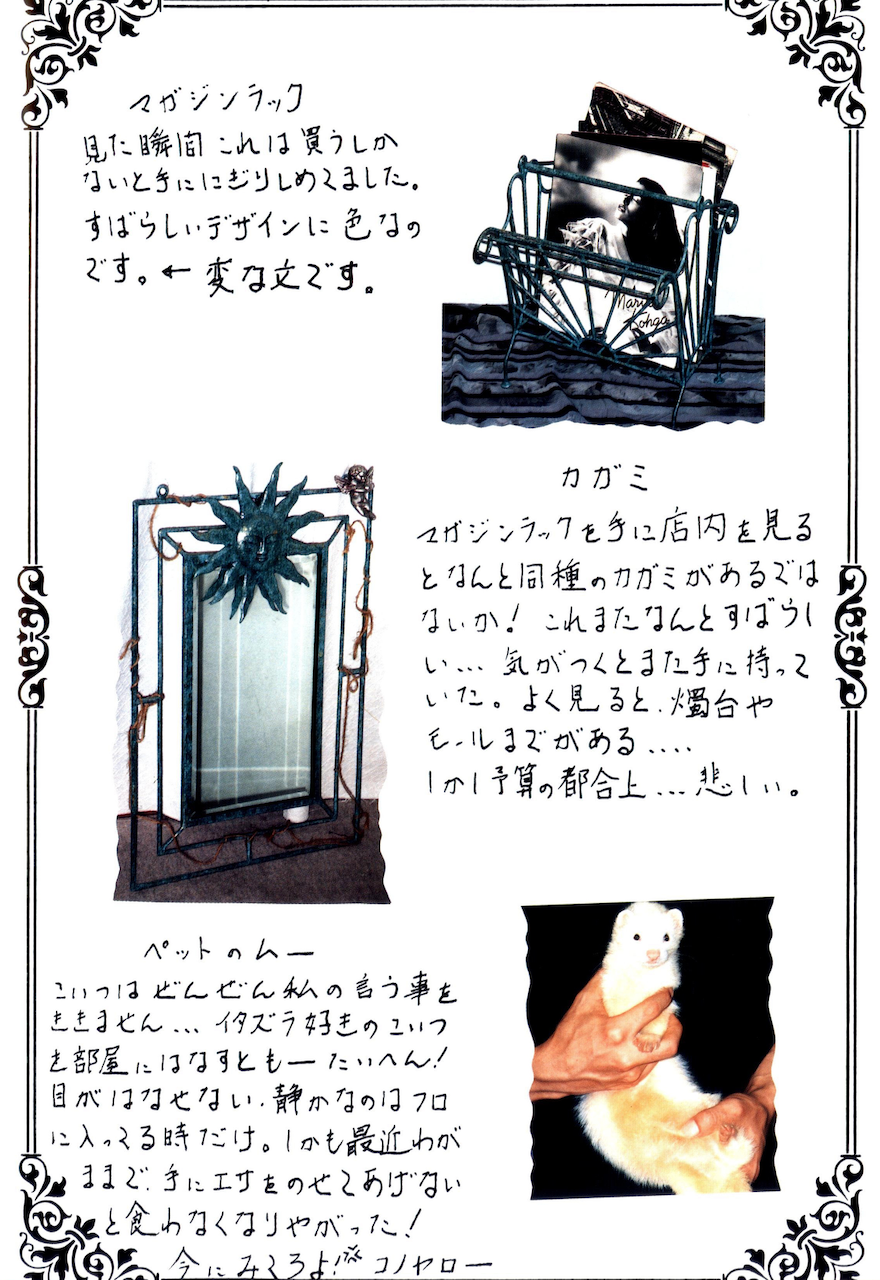 マガジンラック
見た瞬間これは買うしか
ないと手ににぎりしめてました。
すばらしいデザインに色なの
です。←変な文です。
Maria
Kohga
カガミ
マガジンラックを手に店内を見る
となんと同種のカガミがあるでは
ないか！これまたなんとすばらし
い…気がつくとまた手に持って
いた。よく見ると、燭台や
モールまでがある....
しかし予算の都合上…悲しい。
ペットのムー
こいつはぜんぜん私の言う事を
ききません…イタズラ好きのこいつ
を部屋にはなすともーたいへん！
目がはなせない、静かなのはフロ
に入ってる時だけ。しかも最近わが
ままで、手にエサをのせてあげない
と食わなくなりやがった！
今にみてろよ！コノヤロー